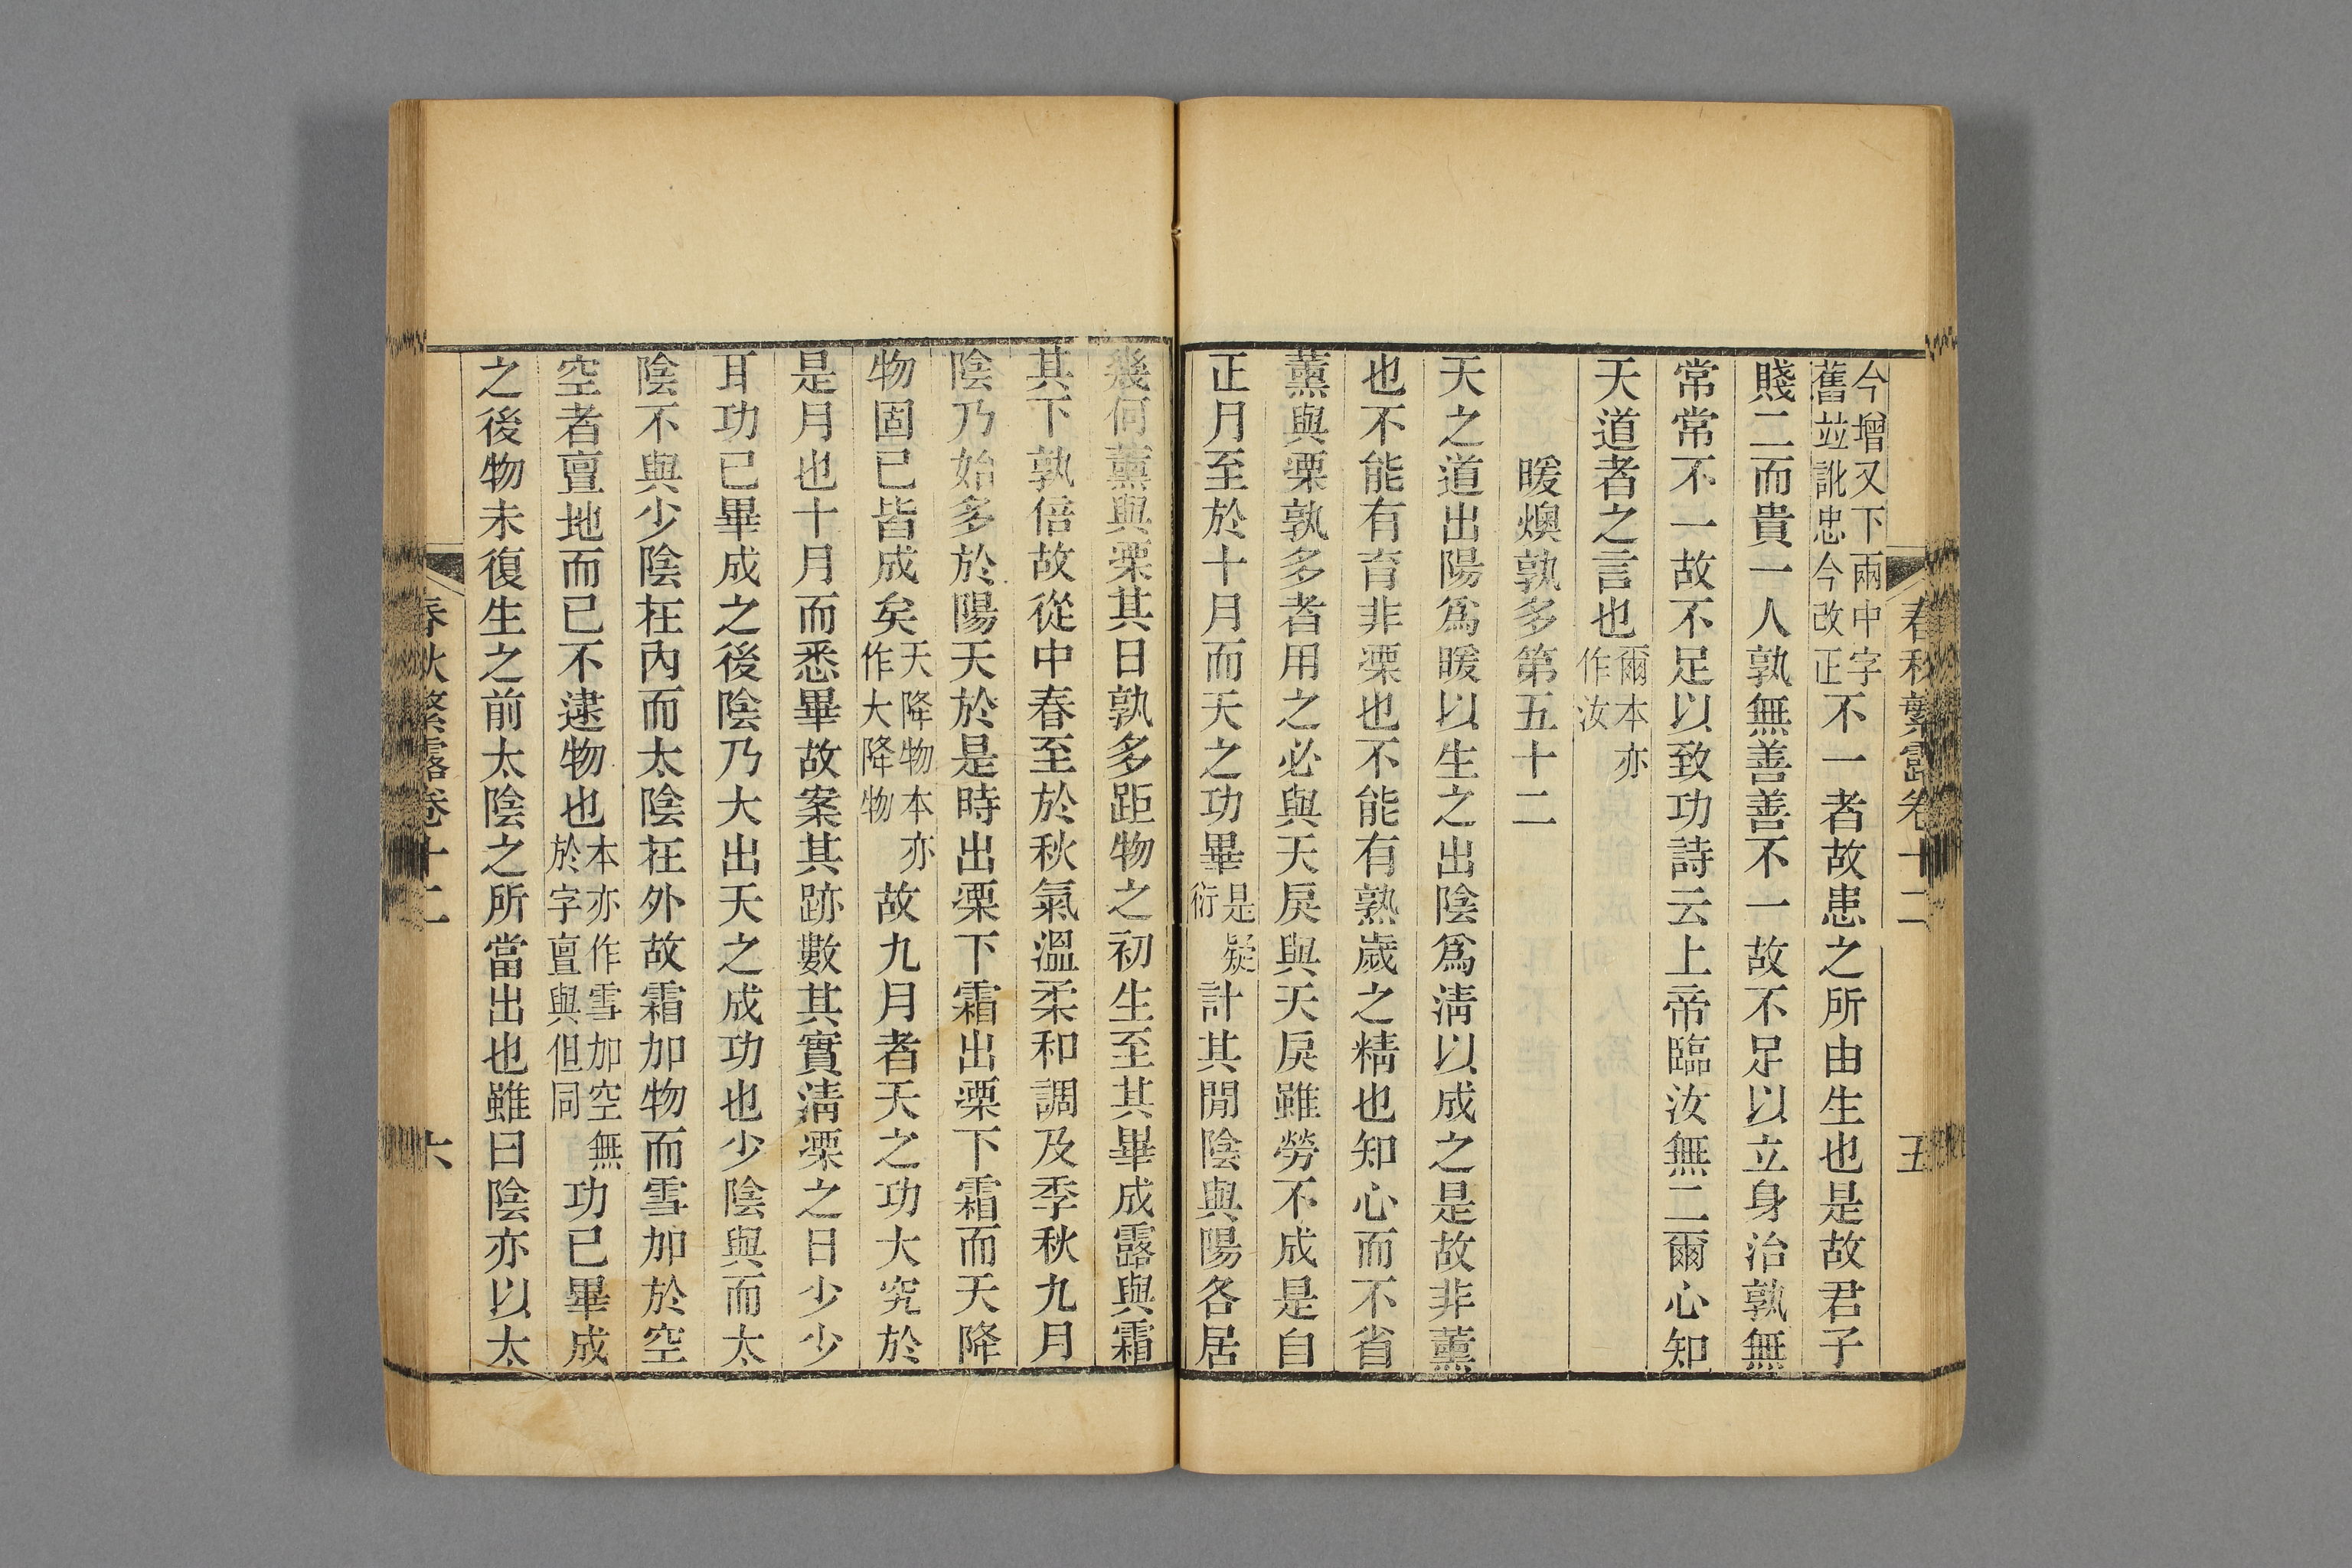 春秋繁露卷十二 五
今增又下兩中字舊並訛忠今改正不一者故患之所由生也是故君子
賤二而貴一人孰無善善不一故不足以立身治孰無
常常不一故不足以致功詩云上帝臨汝無二爾心知
天道者之言也爾本亦作汝
暖燠孰多第五十二
天之道出陽爲暖以生之出陰爲淸以成之是故非薰
也不能有育非溧也不能有熟歲之精也知心而不省
薰與溧孰多者用之必與天戾與天戾雖勞不成是自
正月至於十月而天之功畢是疑衍計其閒陰與陽各居
幾何薰與溧其日孰多距物之初生至其畢成露與霜
其下孰倍故從中春至於秋氣溫柔和調及季秋九月
陰乃始多於陽天於是時出溧下霜出溧下霜而天降
物固已皆成矣天降物本亦作大降物故九月者天之功大究於
是月也十月而悉畢故案其跡數其實淸溧之日少少
耳功已畢成之後陰乃大出天之成功也少陰與而太
陰不與少陰在內而太陰在外故霜加物而雪加於空
空者亶地而已不逮物也本亦作雪加空無於字亶與但同功已畢成
之後物未復生之前太陰之所當出也雖曰陰亦以太
春秋繁露卷十二 六